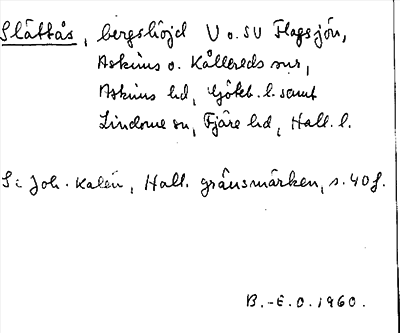 Slättås, bergshöjd V o. SV Flagsjön,
Askims o. Kållereds snr,
Askims hd, Göteb. l. samt
Lindome sn, Fjäre hd, Hall. l.
S: Joh. Kalén, Hall. gränsmärken, s. 40 f.
B.-E. O. 1960.